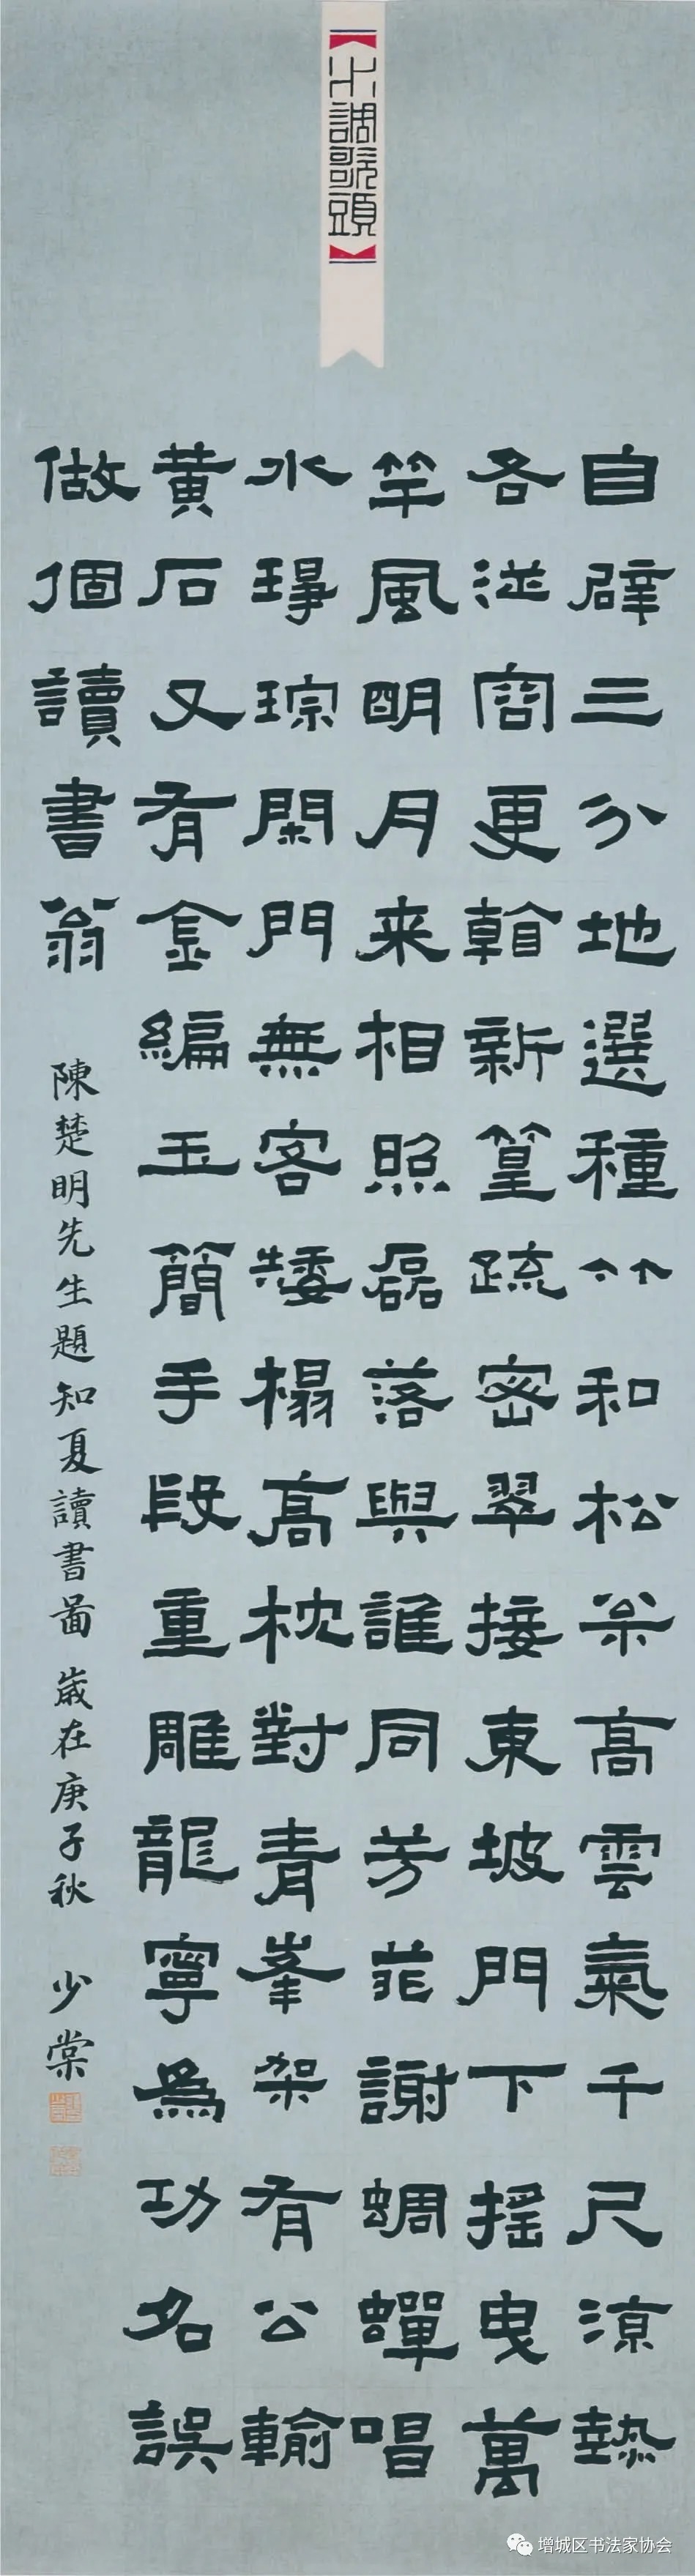 水調歌頭
自辟三分地選種竹和松枀高雲氣千尺涼熱
各從容更看新篁疏密翠接東坡門下搖曳萬
竿風明月来相照磊落與誰同芳菲謝蜩蟬唱
水琤琮閑門無客矮榻高枕對青峯架有公輸
黄石又有金編玉簡手段重雕龍寧為功名誤
做個讀書翁 陳楚明先生題知夏讀書啚 歲在庚子秋 少棠
增城区书法家协会